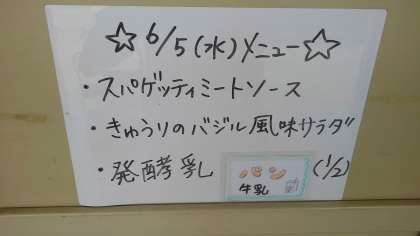 ☆6/5(水)メニュー☆
・スパゲッティミートソース
・きゅうりのバジル風味サラダ
・発酵乳 パン (1/2)
牛乳